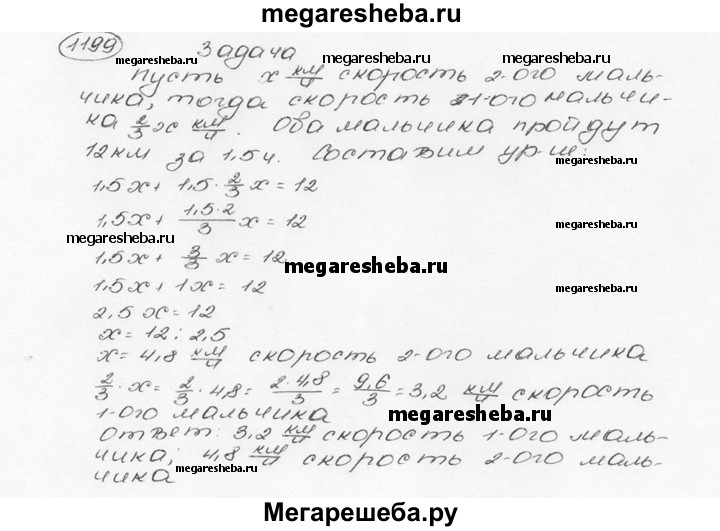 megaresheba.ru
1199 Задача
megaresheba.ru megaresheba.ru
Пусть x км/ч скорость 2-ого маль-
чика, тогда скорость 1-ого мальчи-
megaresheba.ru
ка 2/3 x км/ч. Оба мальчика пройдут
megaresheba.ru
12 км за 1,5 ч. Составим ур-ие:
1,5x + 1,5 · 2/3 x = 12
megaresheba.ru
1,5x + 1,5·2/3 x = 12
megaresheba.ru
1,5x + 3/3 x = 12
megaresheba.ru
1,5x + 1x = 12
megaresheba.ru
2,5x = 12
x = 12 : 2,5
x = 4,8 км/ч скорость 2-ого мальчика
2/3 · x = 2/3 · 4,8 = 2·4,8/3 = 9,6/3 = 3,2 км/ч скорость
1-ого мальчика
megaresheba.ru
Ответ: 3,2 км/ч скорость 1-ого маль-
чика; 4,8 км/ч скорость 2-ого маль-
megaresheba.ru
чика
Мегарешеба.ру